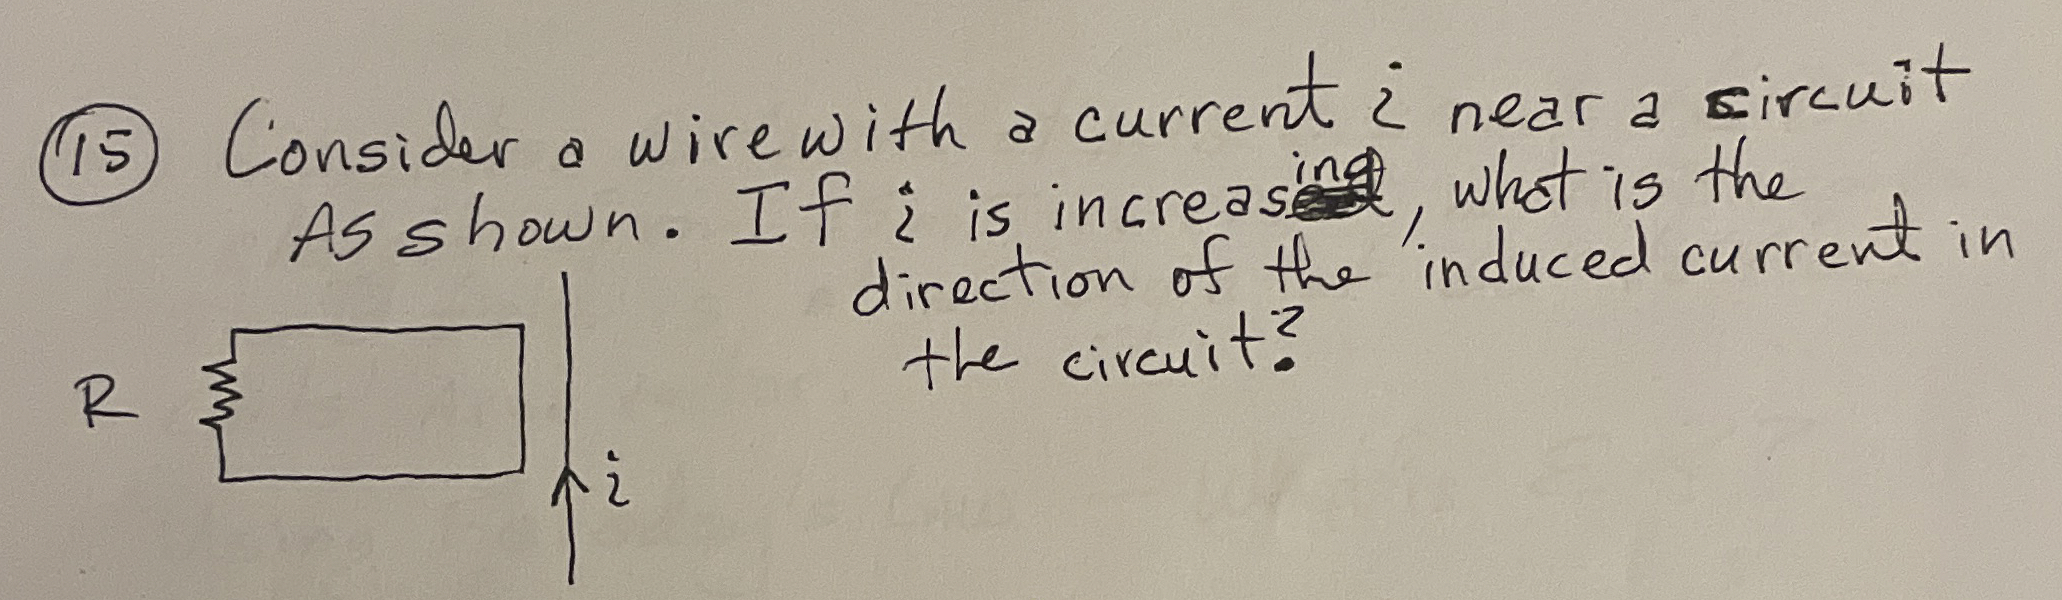 15 Consider a wire with a current i near a circuit
As shown. If i is increasing, what is the
direction of the induced current in
the circuit?
R
i